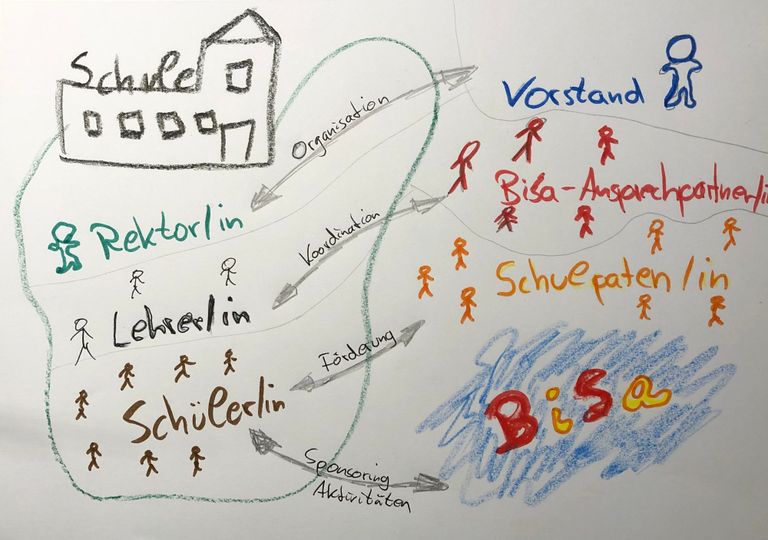 Schule
Organisation
Vorstand
Bisa-Ansprechpartner/in
Rektor/in
Koordination
Schulepaten/in
Lehrer/in
Förderung
Schüler/in
BiSa
Sponsoring
Aktivitäten